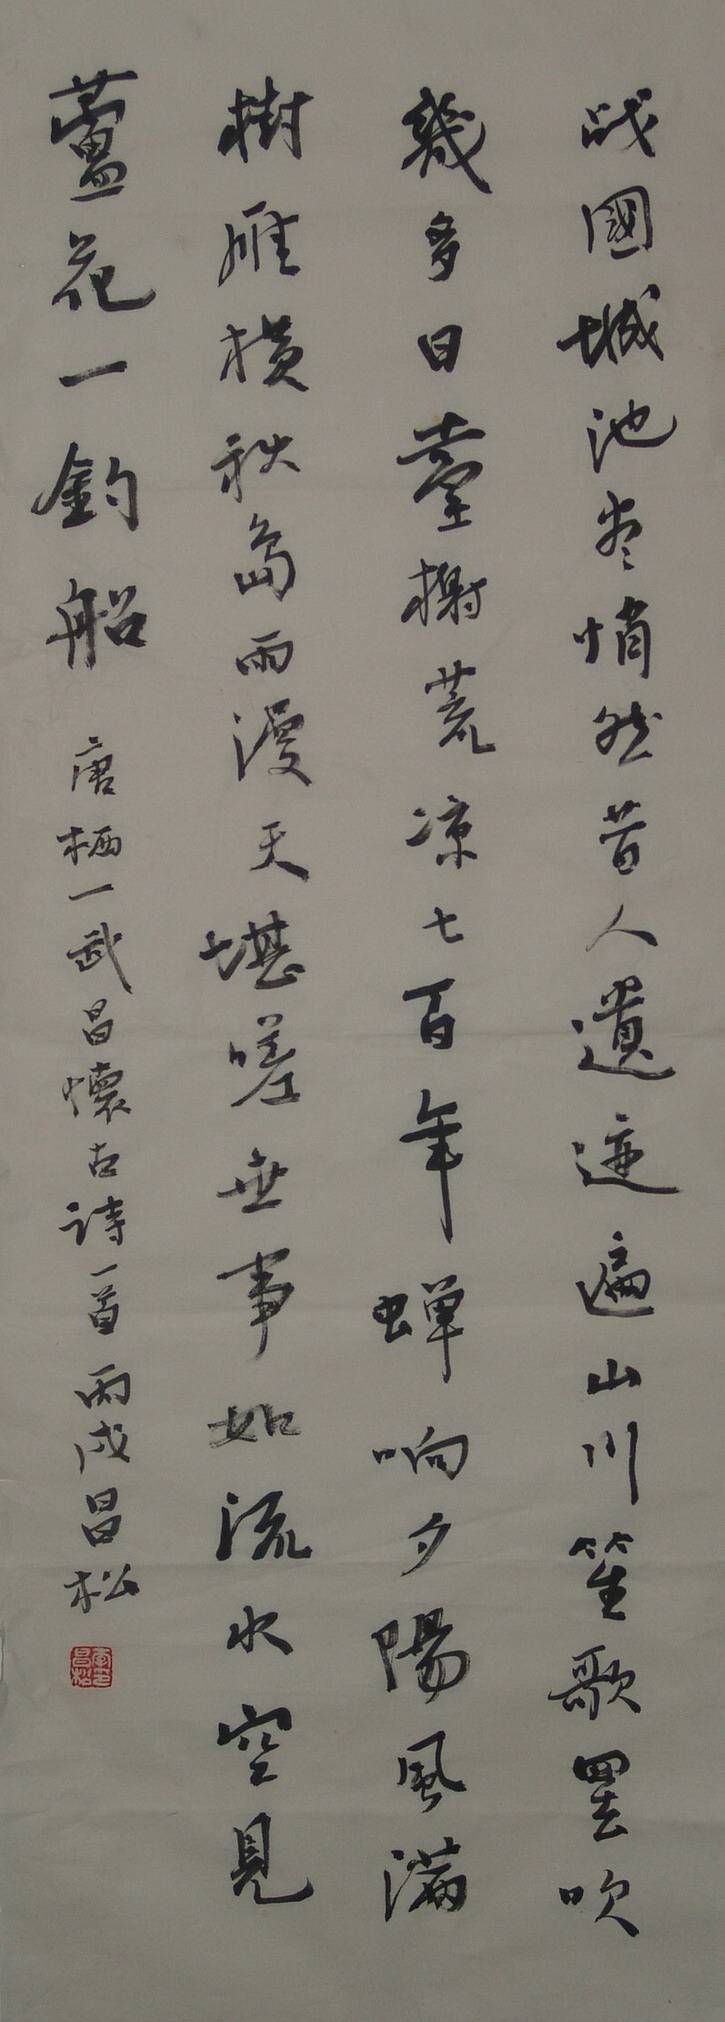 战國城池尽悄然昔人遺迹遍山川笙歌罢吹
幾多日臺榭荒凉七百年蝉响夕陽風满
樹雁横秋島雨漫天堪嗟世事如流水空見
蘆花一釣船
唐栖一武昌懷古詩一首丙戌昌松